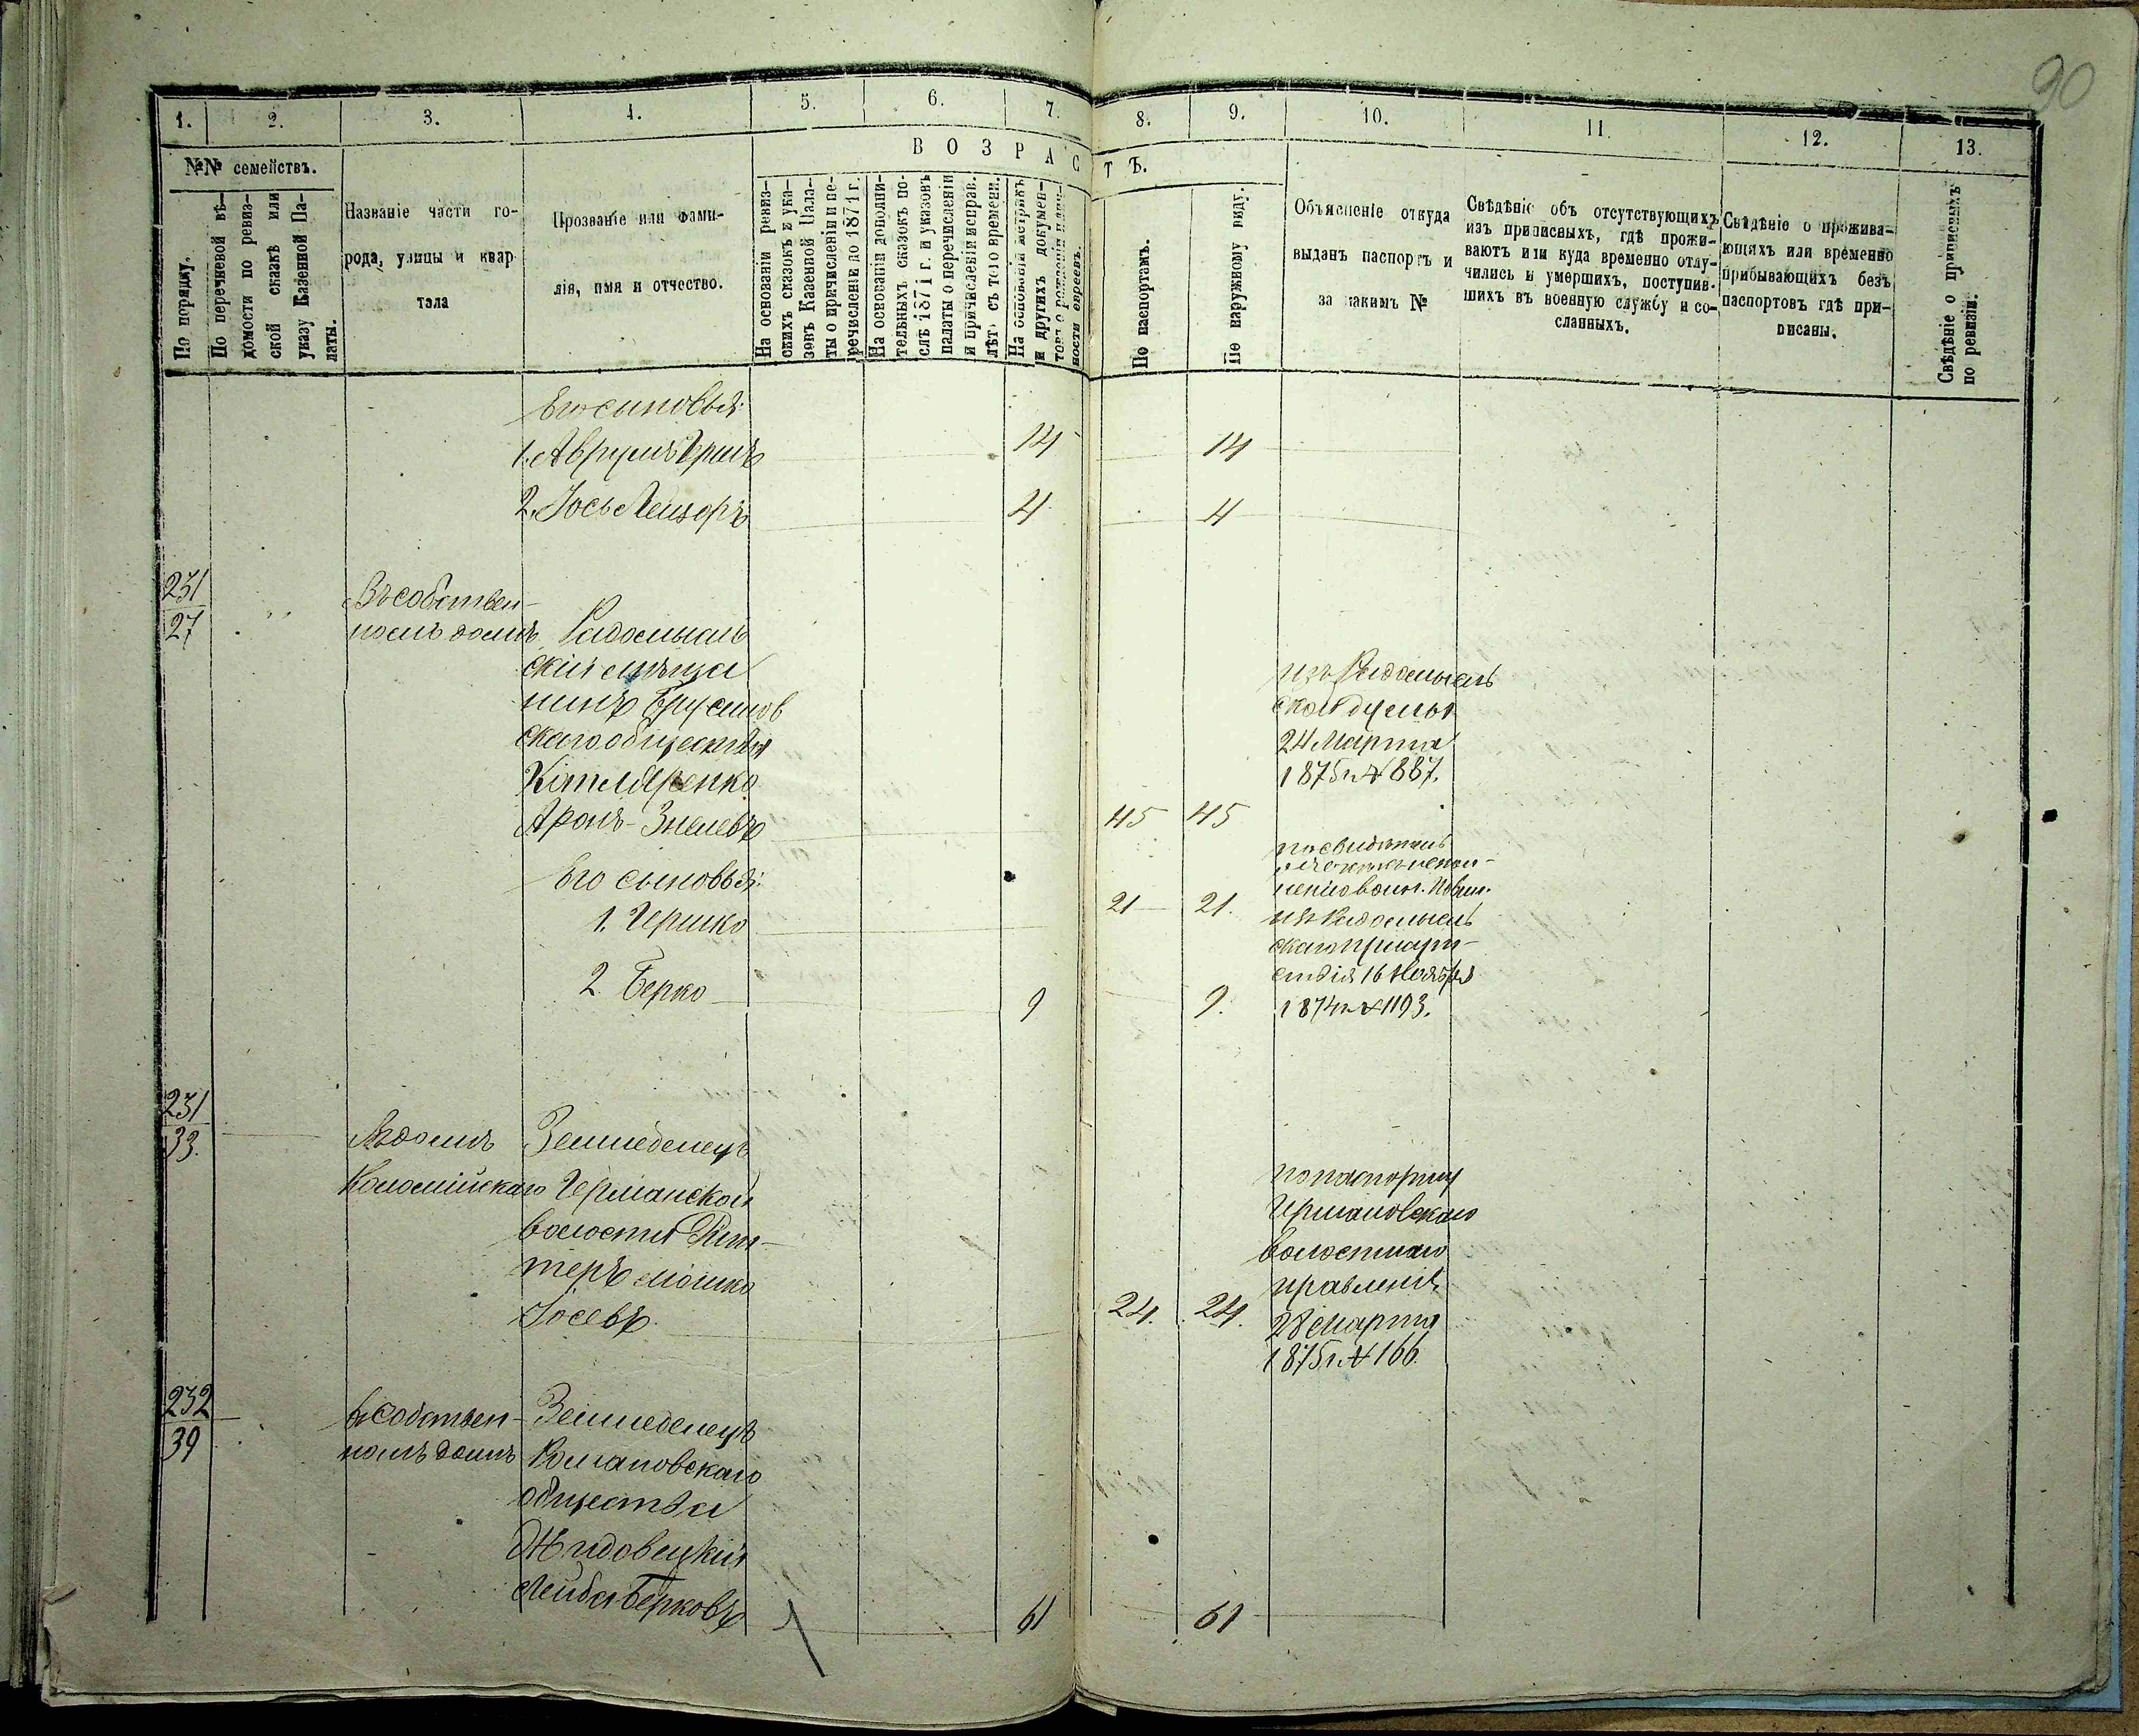 90
1. 2. 3. 4. 5. 6. 7. 8. 9. 10. 11. 12. 13.
№№ семействъ.
В О З Р А С Т Ъ.
По порядку.
По перечневой вѣ-
домости по ревиз-
ской сказкѣ или
указу Казенной Па-
латы.
Названіе части го-
рода, улицы и квар
тала
Прозваніе или фами-
лія, имя и отчество.
На основаніи ревиз-
скихъ сказокъ и ука-
зовъ Казенной Пала-
ты о причисленіи и пе-
речисленіи до 1871 г.
На основаніи дополни-
тельныхъ сказокъ по-
слѣ 1871 г. и указовъ
палаты о перечисленіи
и причисленіи исправ.
лѣтъ съ того времени.
На основаніи метрикъ
и другихъ докумен-
товъ о рожденіи
ности евреевъ.
По паспортамъ.
По наружному виду.
Объясненіе откуда
выданъ паспортъ и
за какимъ №
Свѣдѣніе объ отсутствующихъ
изъ приписныхъ, гдѣ прожи-
ваютъ или куда временно отлу-
чились и умершихъ, поступив-
шихъ въ военную службу и со-
сланныхъ.
Свѣдѣніе о прожива-
ющихъ или временно
прибывающихъ безъ
паспортовъ гдѣ при-
писаны.
Свѣдѣніе о приписныхъ
по ревизіи.
Его сыновья:
1. Аврумъ 14 14
2. Іось Лейзоръ 4 4
231
27
Въ собствен-
номъ домѣ
Радомысль
скій мѣща
нинъ Брусилов
скаго общества
Котляренко
Аронъ 45 45
изъ Радомысль
ской думы
24 Марта
1875 г. № 887.
Его сыновья:
1. Гершко 21 21.
2. Берко 9 9.
по свидѣтель
изъ Радомысль
скаго присут-
ствія 16 Ноября
1874 г. № 1193.
231
33.
Въ домѣ
Коломійскаго
Земледелецъ
Германской
волости Рит-
теръ Мошко
Іосевъ 24. 24.
по паспорту
Германовскаго
волостнаго
правленія
28 Марта
1875 г. № 166.
232
39
въ собствен-
номъ домѣ
Земледелецъ
Романовскаго
общества
Жидовецкій
Лейба Берковъ 61 61